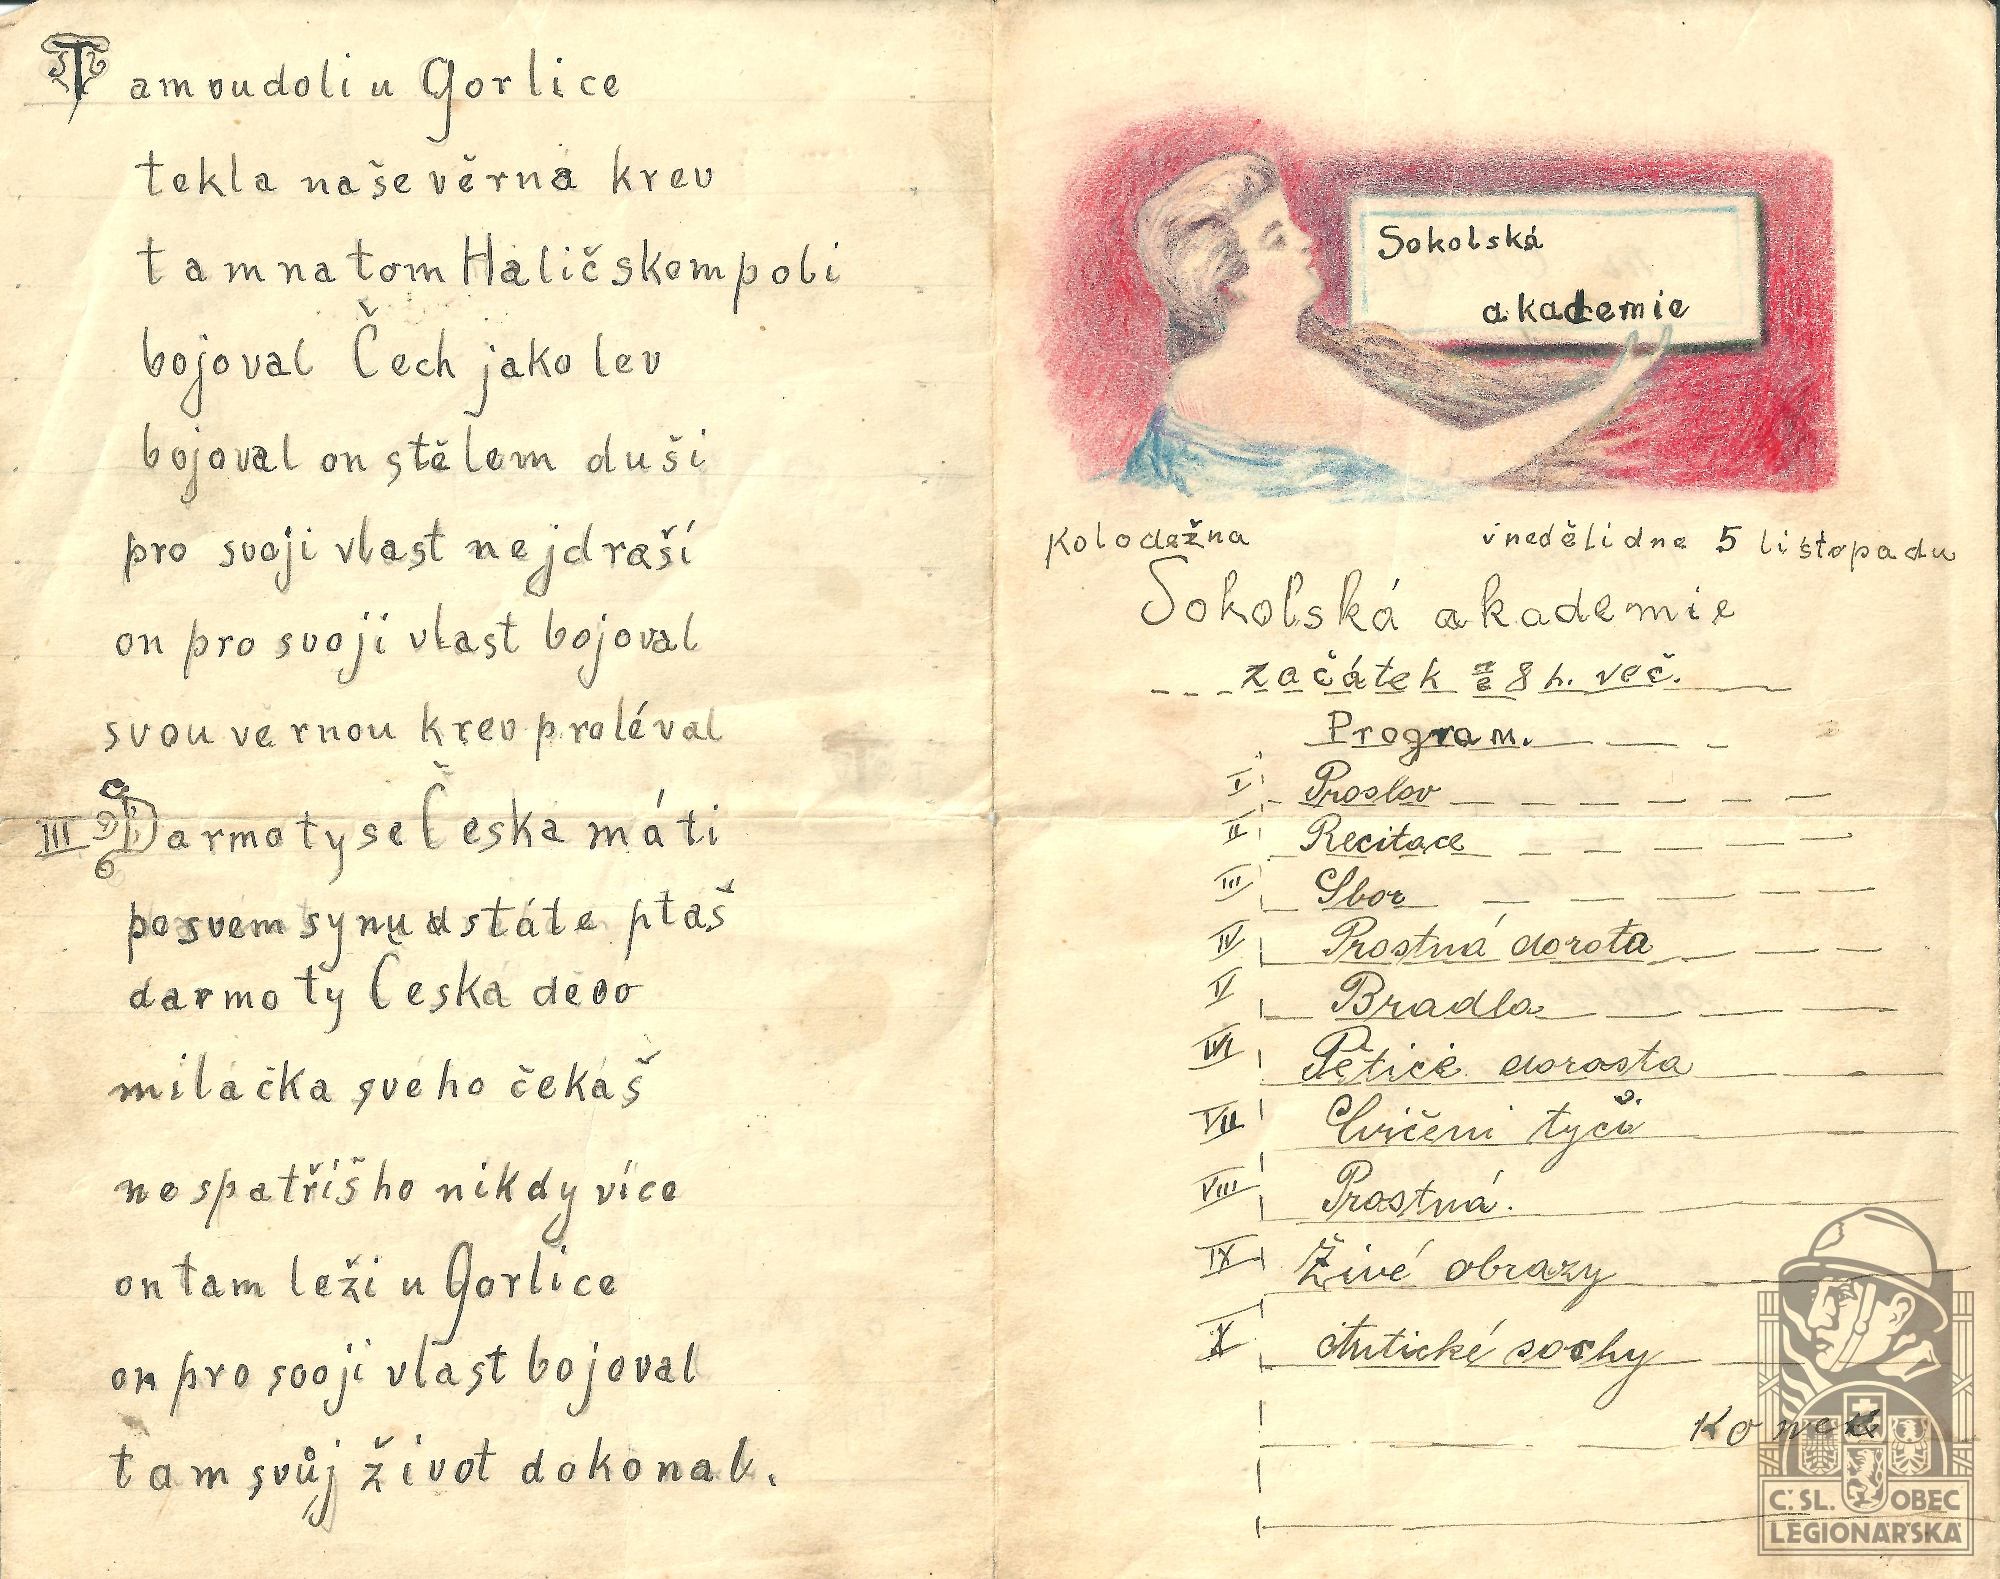 Tam v udoli u Gorlice
tekla naše věrná krev
tam na tom Haličskem poli
bojoval Čech jako lev
bojoval on s tělem duši
pro svoji vlast nejdraší
on pro svoji vlast bojoval
svou věrnou krev proléval
III Darmo ty se Česka máti
po svem synu dstáte ptaš
darmo ty Česká děvo
miláčka svého čekáš
nespatříš ho nikdy více
on tam leži u Gorlice
on pro svoji vlast bojoval
tam svůj život dokonal.
Sokolská
akademie
Kolodežna v neděli dne 5 listopadu
Sokolská akademie
začátek 8 h. več.
Program.
I Proslov
II Recitace
III Sbor
IV Prostná dorota
V Bradla
VI Pětice dorosta
VII Cvičeni tyči
VIII Prostná.
IX Živé obrazy
X Antické sochy
Konec
Č.SL. OBEC
LEGIONÁŘSKÁ